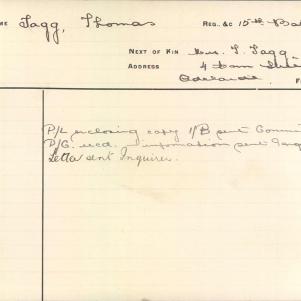 ME Tagg, Thomas REG. &C 15th Bat
NEXT OF KIN Mrs. T. Tagg
ADDRESS 4 Cam
Adelaide. F
P/L enclosing copy 1/B sent Comm
P/C. recd. information sent Inq
Letter sent Inquirer.